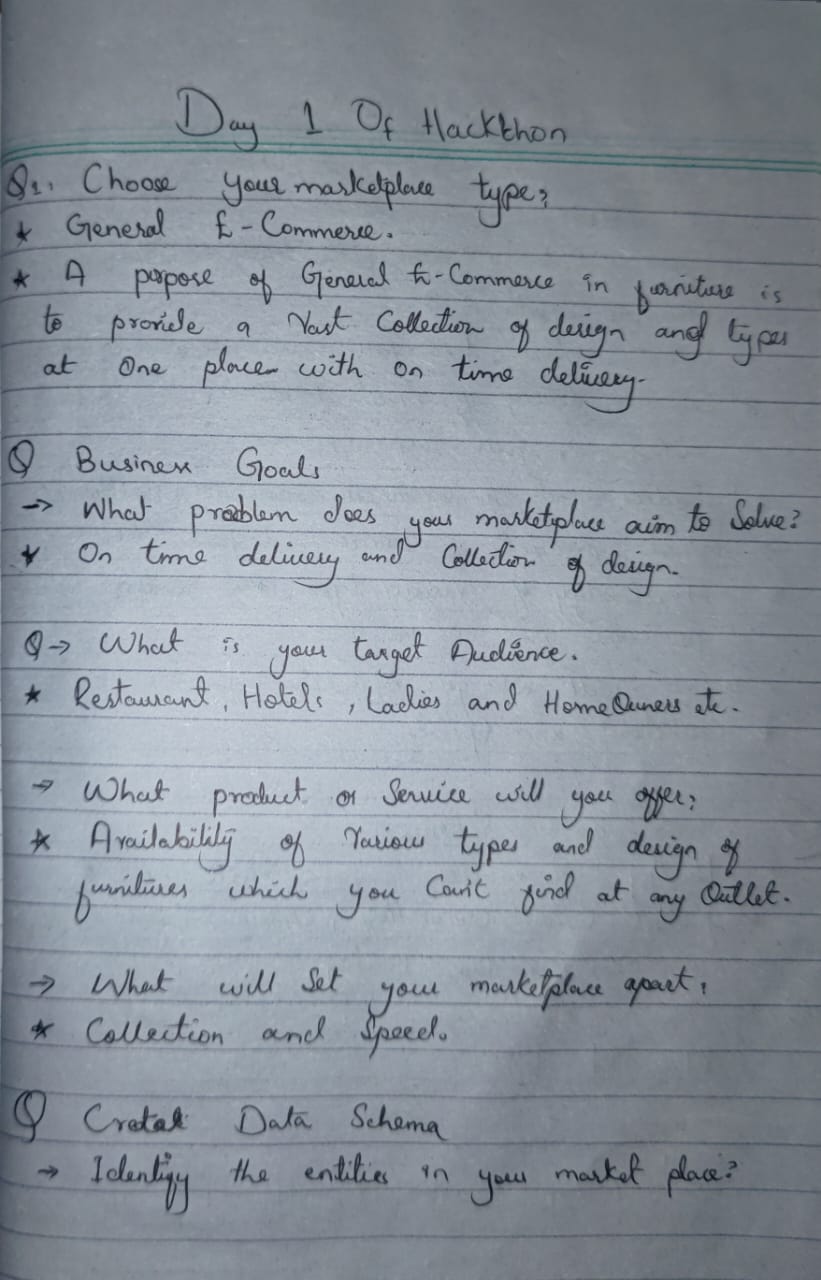 Day 1 Of Hackthon
Q1. Choose your marketplace type?
* General E-Commerce.
* A porpose of General E-Commerce in furniture is
to provide a Vast Collection of design and types
at One place with on time delivery.
Q Business Goals
→ What problem does your marketplace aim to Solve?
* On time delivery and Collection of design.
Q→ What is your target Audience.
* Restaurant, Hotels, Ladies and Home Owners etc.
→ What product or Service will you offer?
* Availability of Various types and design of
furnitures which you Can't find at any Outlet.
→ What will Set your marketplace apart?
* Collection and Speed.
Q Data Schema
→ Identify the entities in your market place?